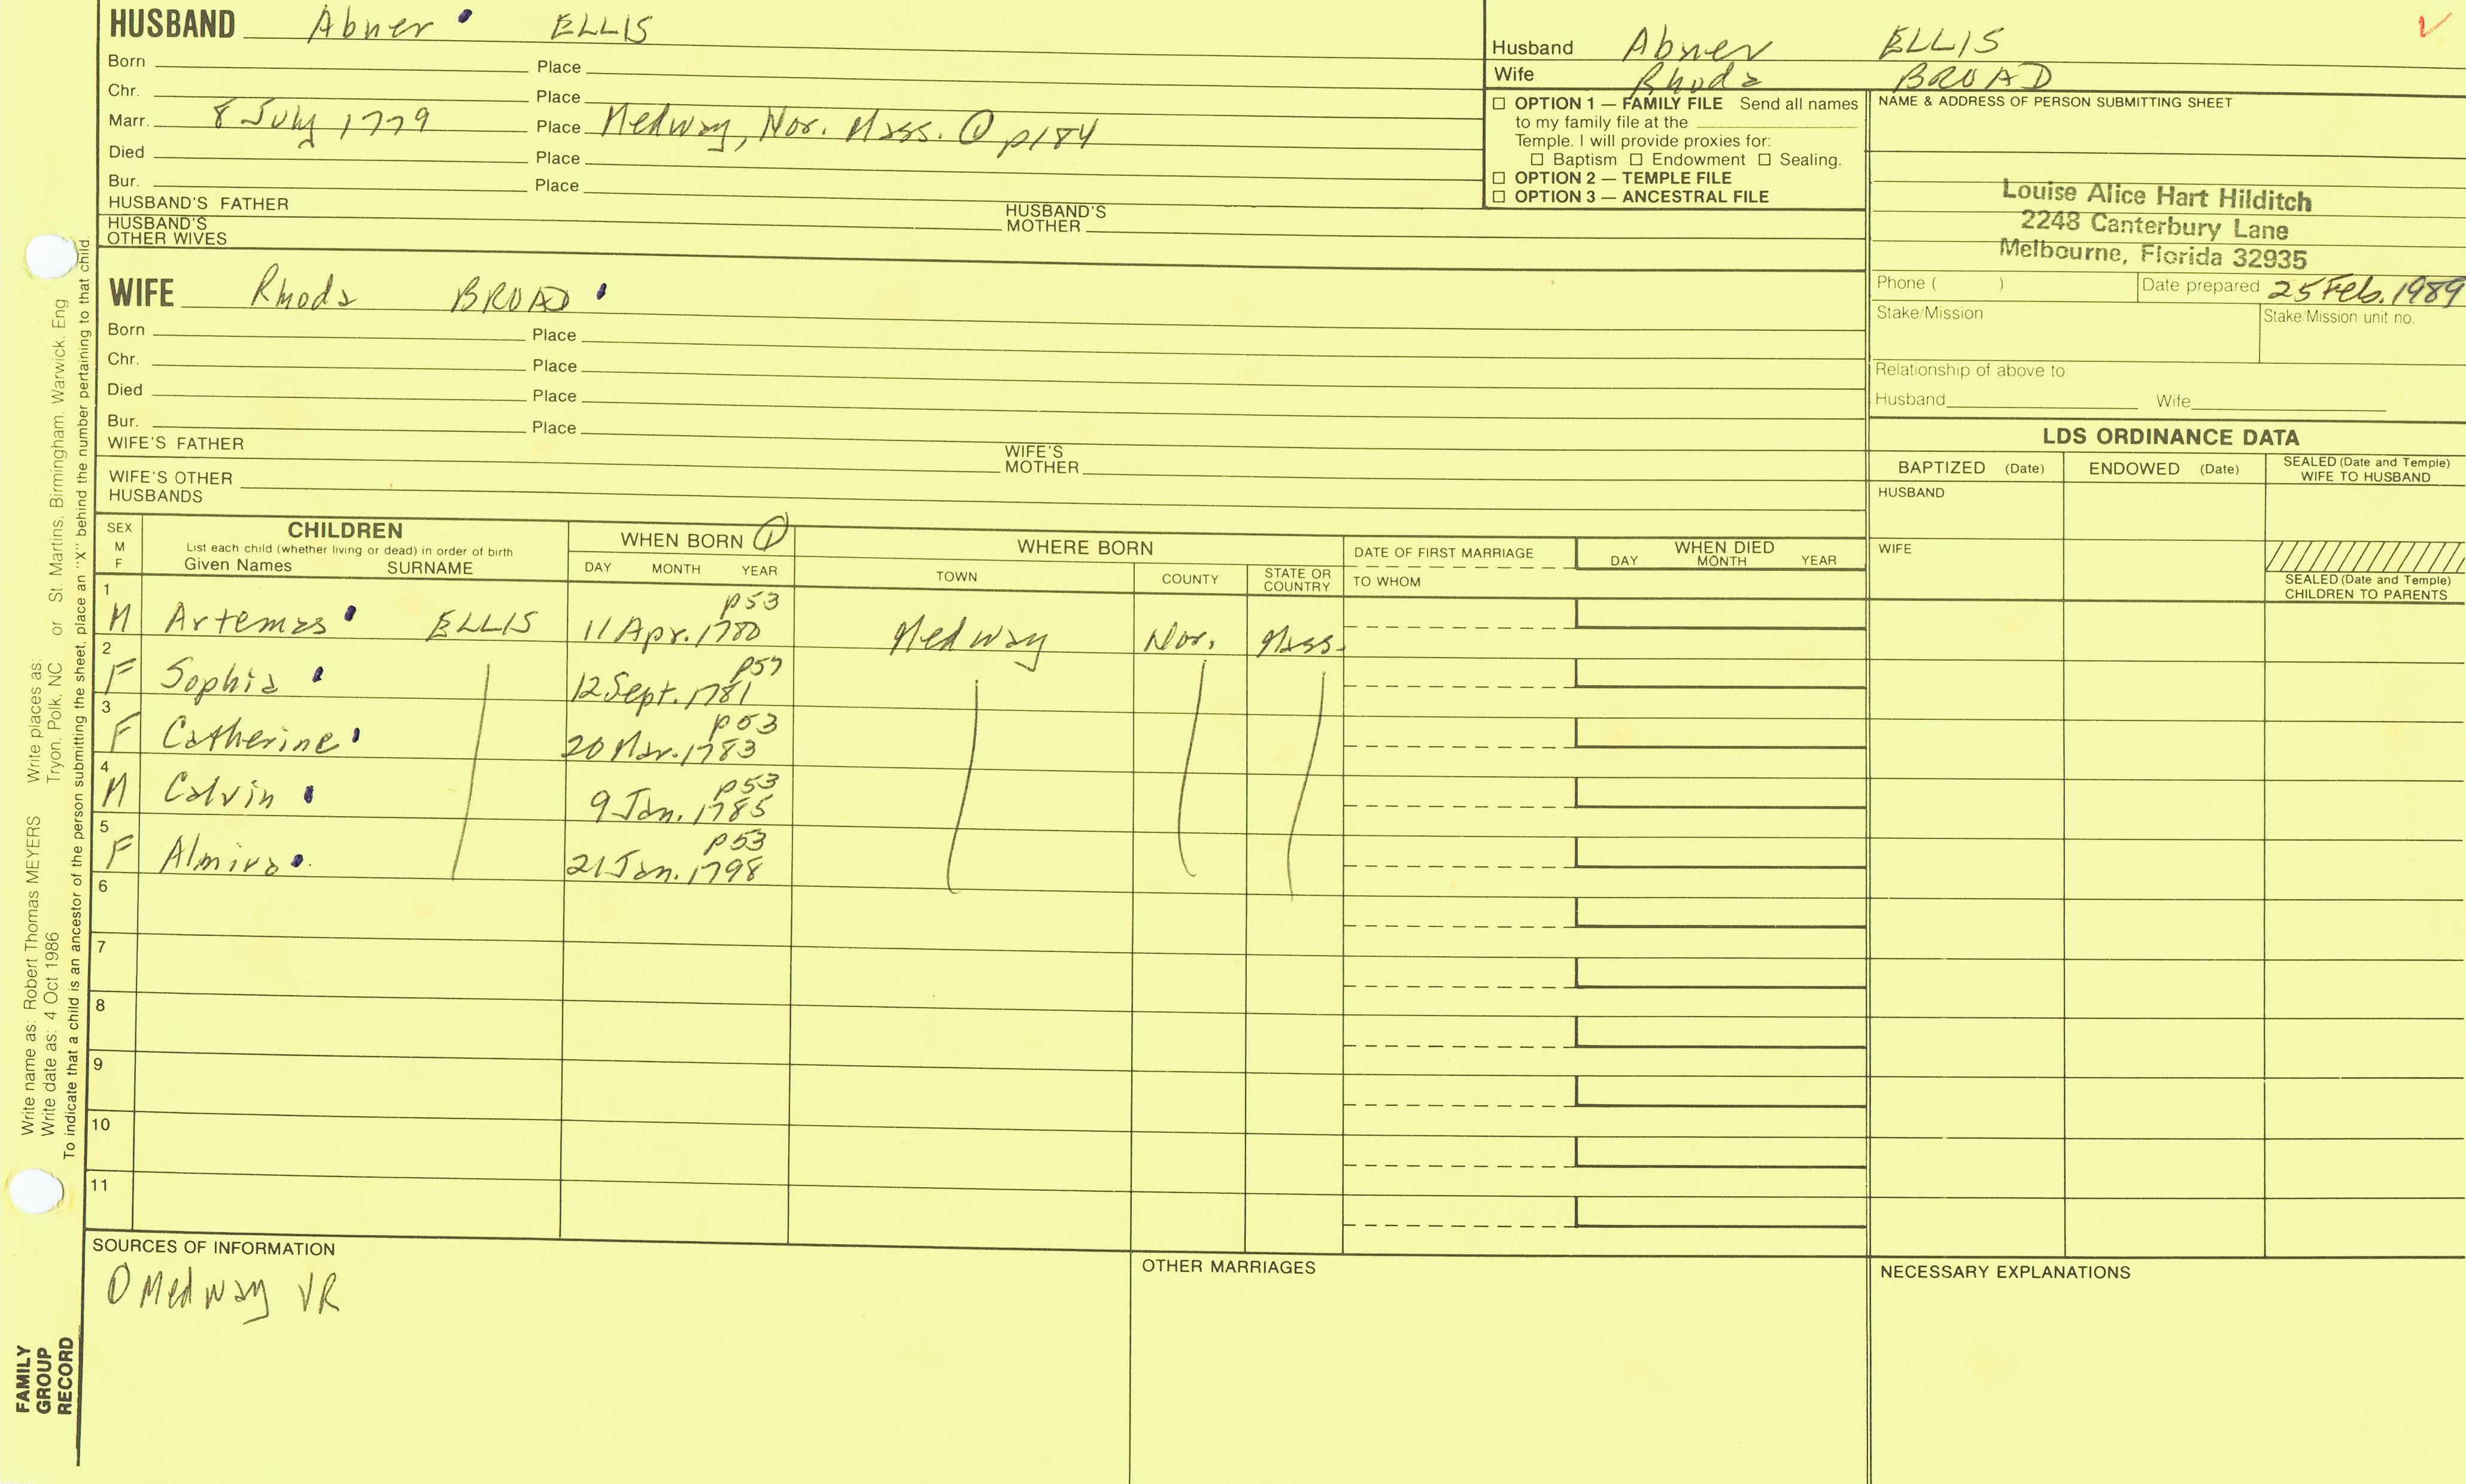 HUSBAND Abner ELLIS
Born Place
Chr. Place
Marr. 8 July 1779 Place Medway, Nor. Mass. ① p184
Died Place
Bur. Place
HUSBAND'S FATHER HUSBAND'S MOTHER
HUSBAND'S OTHER WIVES
Husband Abner ELLIS
Wife Rhoda BROAD
☐ OPTION 1 — FAMILY FILE Send all names
to my family file at the
Temple. I will provide proxies for:
☐ Baptism ☐ Endowment ☐ Sealing.
☐ OPTION 2 — TEMPLE FILE
☐ OPTION 3 — ANCESTRAL FILE
NAME & ADDRESS OF PERSON SUBMITTING SHEET
Louise Alice Hart Hilditch
2248 Canterbury Lane
Melbourne, Florida 32935
Phone ( ) Date prepared 25 Feb. 1989
Stake/Mission Stake/Mission unit no.
Relationship of above to:
Husband Wife
WIFE Rhoda BROAD
Born Place
Chr. Place
Died Place
Bur. Place
WIFE'S FATHER WIFE'S MOTHER
WIFE'S OTHER HUSBANDS
LDS ORDINANCE DATA
BAPTIZED (Date) ENDOWED (Date) SEALED (Date and Temple) WIFE TO HUSBAND
HUSBAND
WIFE
SEALED (Date and Temple) CHILDREN TO PARENTS
SEX M F
CHILDREN
List each child (whether living or dead) in order of birth
Given Names SURNAME
WHEN BORN ①
DAY MONTH YEAR
WHERE BORN
TOWN COUNTY STATE OR COUNTRY
DATE OF FIRST MARRIAGE
TO WHOM
WHEN DIED
DAY MONTH YEAR
1 M Artemas ELLIS p53 11 Apr. 1780 Medway Nor. Mass.
2 F Sophia p57 12 Sept. 1781
3 F Catherine p53 20 Mar. 1783
4 M Calvin p53 9 Jan. 1785
5 F Almira p53 21 Jan. 1798
6
7
8
9
10
11
SOURCES OF INFORMATION
① Medway VR
OTHER MARRIAGES
NECESSARY EXPLANATIONS
Write name as: Robert Thomas MEYERS Write places as:
Write date as: 4 Oct 1986 Tryon, Polk, NC or St. Martins, Birmingham, Warwick, Eng
To indicate that a child is an ancestor of the person submitting the sheet, place an "X" behind the number pertaining to that child.
FAMILY
GROUP
RECORD